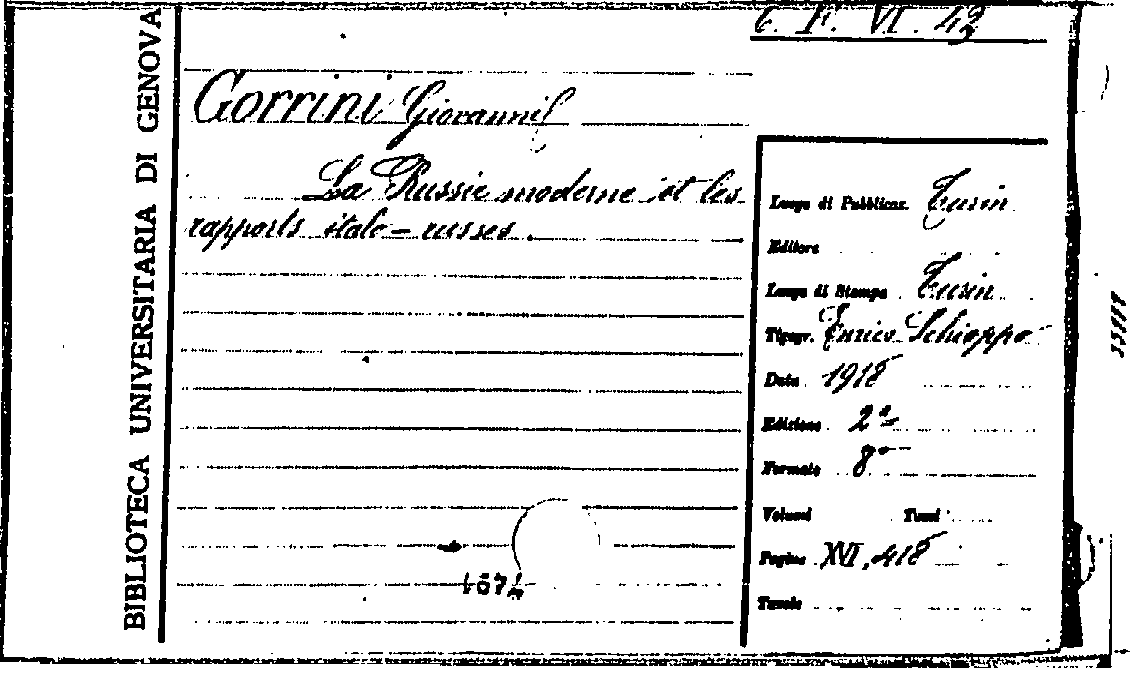 BIBLIOTECA UNIVERSITARIA DI GENOVA
6. F. VI. 42
Gorrini Giovanni
La Russie moderne et les
rapports italo-russes.
Luogo di Pubblicaz. Turin
Editore
Luogo di Stampa Turin
Tipogr. Enrico Schioppo
Data 1918
Edizione 2a
Formato 8°
Volumi Tomi
Pagine XVI, 418
Tavole